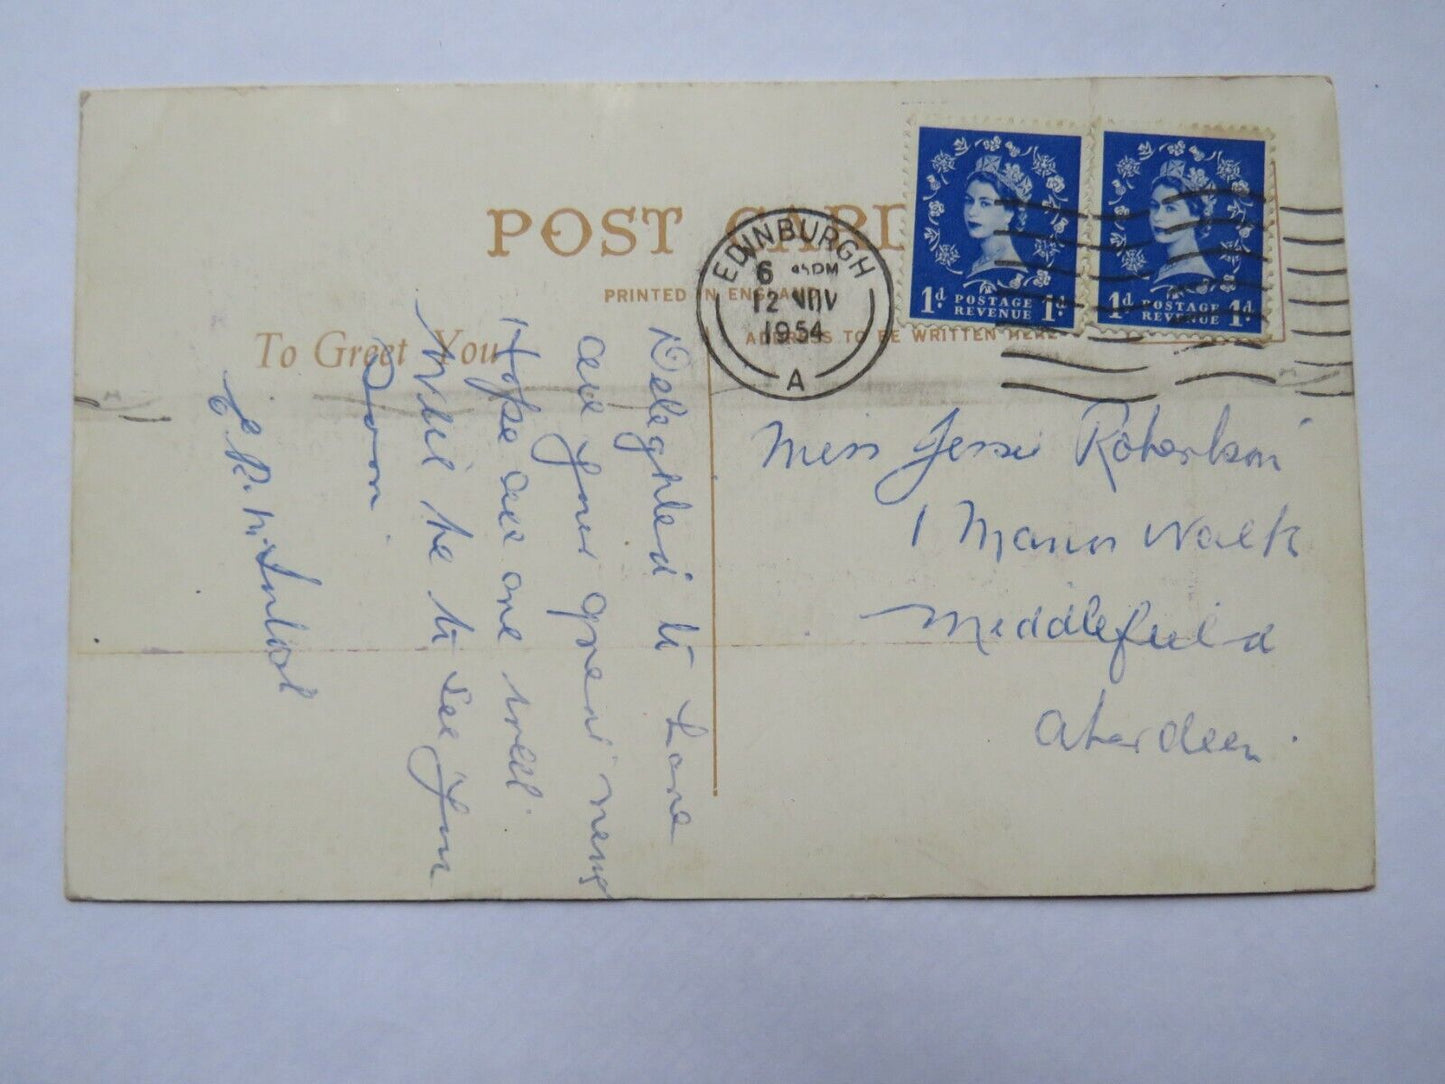 POST CARD
PRINTED IN ENGLAND
ADDRESS TO BE WRITTEN HERE
To Greet You
EDINBURGH
6 PM
12
1954
A
1d POSTAGE REVENUE 1d
1d POSTAGE REVENUE 1d
Delighted to have
all your good news
Hope all are well
Will be to see you
Soon
Miss Jessie Robertson
1 Manor Walk
Middlefield
Aberdeen.